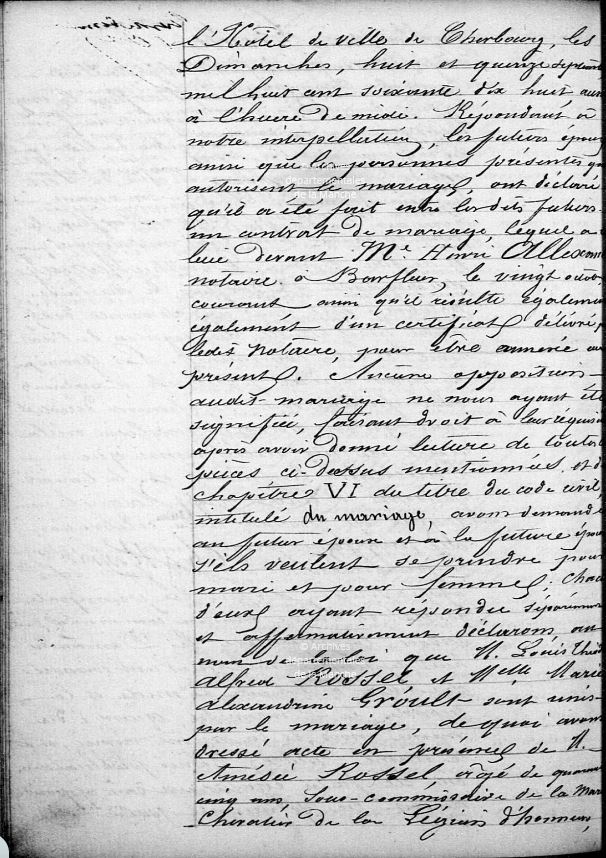 l'Hôtel de ville de Cherbourg, les
Dimanches, huit et quinze septem
mil huit cent soixante dix huit aux
à l'heure de midi. Répondant à
notre interpellation, les futurs époux
ainsi que les personnes présentes qui
autorisent le mariage, ont déclaré
qu'il a été fait entre les dits futurs
un contrat de mariage, lequel a
lieu devant Me Henri Allexan
notaire à Barfleur, le vingt
courant ainsi qu'il résulte égaleme
également d'un certificat délivré,
ledit notaire, pour être annexé au
présent. Aucune opposition
audit mariage ne nous ayant été
signifiée, faisant droit à leur réquisi
après avoir donné lecture de toutes
pièces ci-dessus mentionnées, et d
chapitre VI du titre du code civil,
intitulé du mariage, avons demandé
au futur époux et à la future épou
s'ils veulent se prendre pour
mari et pour femme; chac
d'eux ayant répondu séparémen
et affirmativement déclarons, au
nom de la loi que M. Louis
Alfred Rossel et Melle Marie
Alexandrine Groult sont unis
par le mariage, de quoi avons
dressé acte en présence de M.
Amédée Rossel âgé de quaran
cinq ans, Sous-commissaire de la Mar
Chevalier de la Légion d'honneur,
départementales
de la Manche
© Archives
départementales
de la Manche